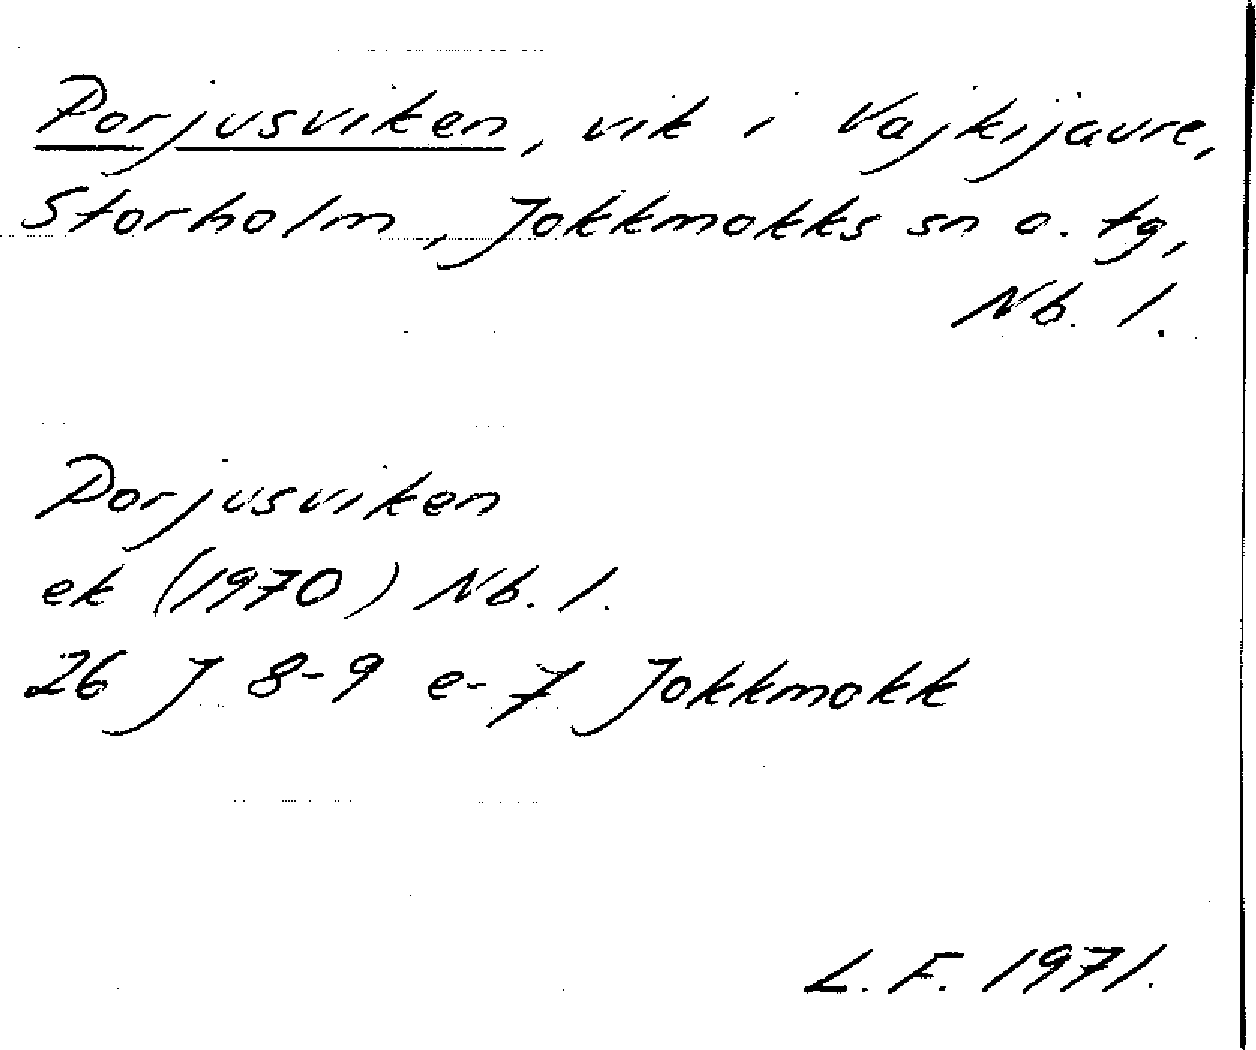 Porjusviken, vik i Vajkijaure,
Storholm, Jokkmokks sn o. tg,
Nb. l.
Porjusviken
ek (1970) Nb. l.
26 J 8-9 e-7 Jokkmokk
L. F. 1971.